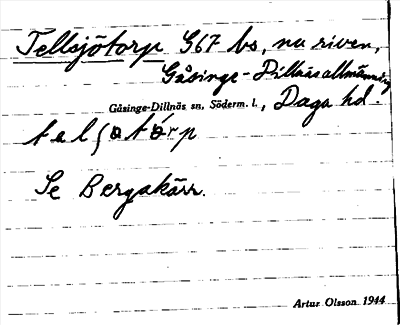 Tellsjötorp 967 bs, nu riven,
Gåsinge-Dillnäs allmänning
Gåsinge-Dillnäs sn, Söderm. l., Daga hd.
Se Bergakärr.
Artur Olsson 1944